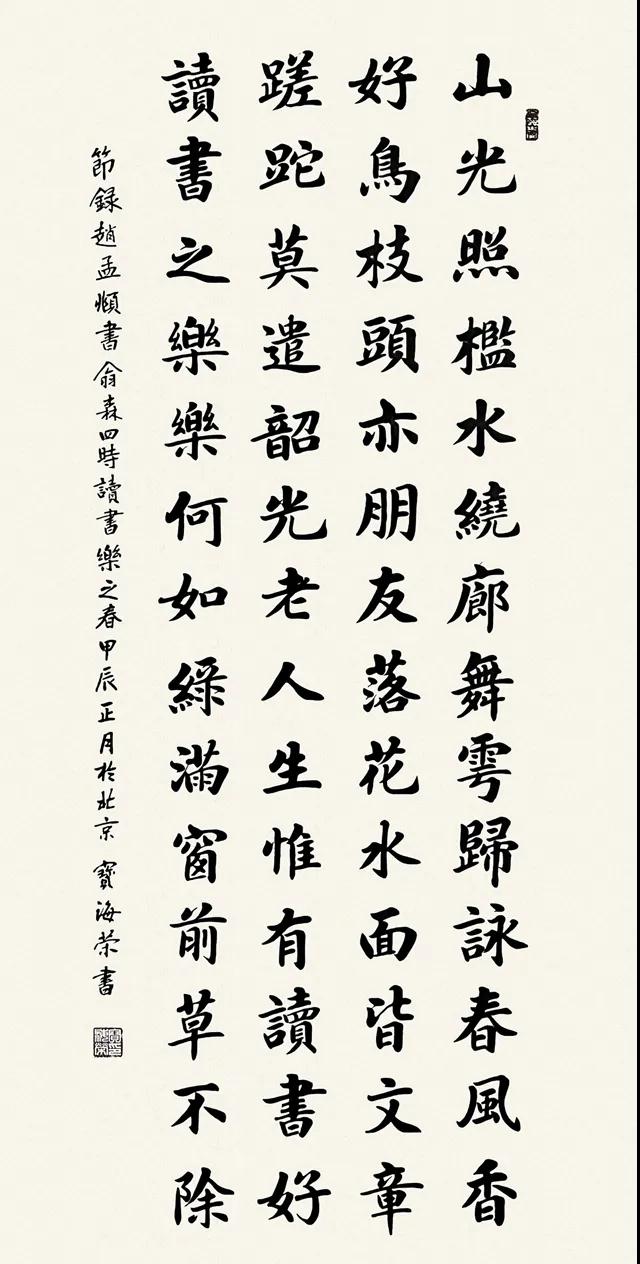 山光照檻水繞廊舞雩歸詠春風香
好鳥枝頭亦朋友落花水面皆文章
蹉跎莫遣韶光老人生惟有讀書好
讀書之樂樂何如綠滿窗前草不除
節録趙孟順書翁森四時讀書樂之春甲辰正月於北京 寶海荣書